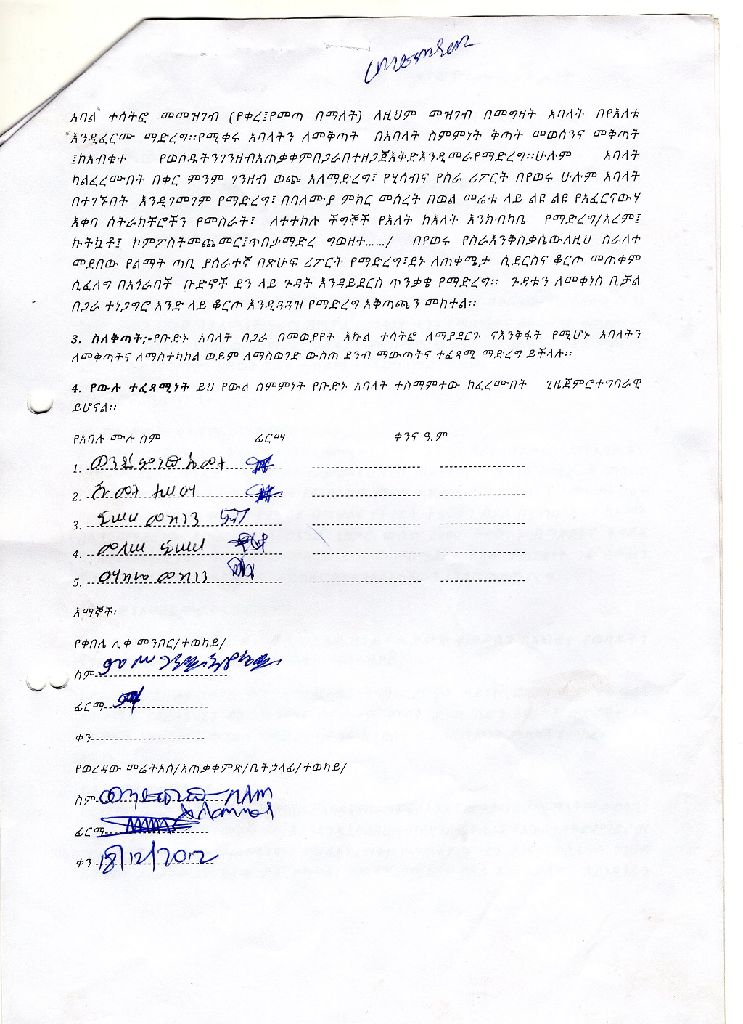 አባል ተሳትፎ መመዝገብ (የቀረ፤የመጣ በማለት) ለዚህም መዝገብ በመግዛት አባላት በየእለቱ
እንዲፈርሙ ማድረግ፡፡የሚቀሩ አባላትን ለመቅጣት በአባላት ስምምነት ቅጣት መወሰንና መቅጣት
፤ከአብቁተ የወሰዱትንገንዘብአጠቃቀምበጋራበተዘጋጀእቅድእንዲመራየማድረግ፡፡ሁሉም አባላት
ካልፈረሙበት በቀር ምንም ገንዘብ ወጭ አለማድረግ፤ የሂሳብና የስራ ሪፖርት በየወሩ ሁሉም አባላት
በተገኙበት እንዲገመገም የማድረግ፤ በባለሙያ ምክር መሰረት በወል መሬቱ ላይ ልዩ ልዩ የአፈርናውሃ
እቀባ ስትራክቸሮችን የመስራት፤ ለተተከሉ ችግኞች የእለት ከእለት እንክብካቤ የማድረግ/አረም፤
ኩትኳቶ፤ ኮምፖስትመጨመር፤ጥበቃማድረ ግወዘተ....../ በየወሩ የስራእንቅስቃሴውለዚህ ስራለተ
መደበው የልማት ጣቢ ያሰራተኛ በጽሁፍ ሪፖርት የማድረግ፤ደኑ ለጠቀሜታ ሲደርስና ቆርጦ መጠቀም
ሲፈለግ በአጎራባች ቡድኖች ደን ላይ ጉዳት እንዳይደርስ ጥንቃቄ የማድረግ፡፡ ጉዳቱን ለመቀነስ ቢቻል
በጋራ ተነጋግሮ አንድ ላይ ቆርጦ እንዲጓጓዝ የማድረግ አቅጣጫን መከተል፡፡
3. ስለቅጣት;-የቡድኑ አባላት በጋራ በመወያየት እኩል ተሳትፎ ለማያደርጉ ናእንቅፋት የሚሆኑ አባላትን
ለመቅጣትና ለማስተካከል ወይም ለማስወገድ ውስጠ ደንብ ማውጣትና ተፈጻሚ ማድረግ ይችላሉ፡፡
4. የውሉ ተፈጻሚነት ይህ የውል ስምምነት የቡድኑ አባላት ተስማምተው ከፈረሙበት ጊዜጀምሮተግባራዊ
ይሆናል፡፡
የአባሉ ሙሉ ስም ፊርማ ቀንና ዓ.ም
1. ወንድምነው እሙት
2.
3. ፍሠሠ መኮንን
4. መለሠ ፍሠሠ
5. መኮንን
እማኞች፡
የቀበሌ ሊቀ መንበር/ተወካይ/
ስም
ፊርማ
ቀን
የወረዳው መሬትአስ/አጠቃቀምጽ/ቤትኃላፊ/ተወካይ/
ስም
ፊርማ
ቀን 18/12/2012